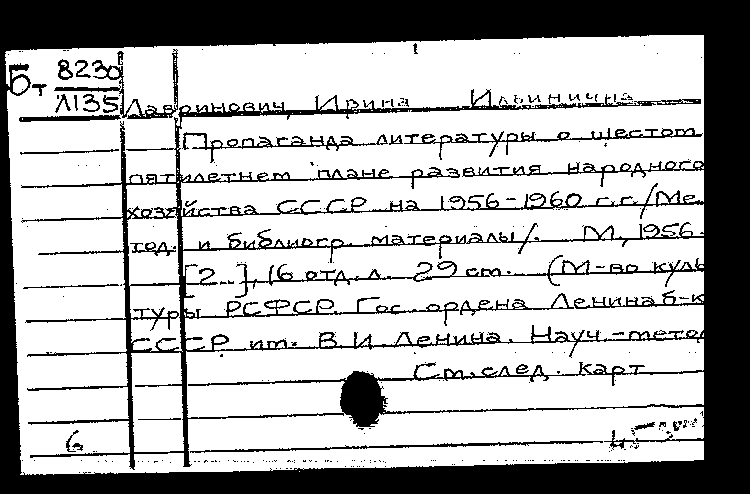 Бт 8230
Л135
Лавринович, Ирина Ильинична
Пропаганда литературы о шестом
пятилетнем плане развития народного
хозяйства СССР на 1956-1960 г.г./Ме
тод. и библиогр. материалы/. М, 1956.
[2..], 16 отд. л. 29 см. (М-во куль
туры РСФСР. Гос. ордена Ленина б-к
СССР им. В.И. Ленина. Науч.-метод
См. след. карт.
6